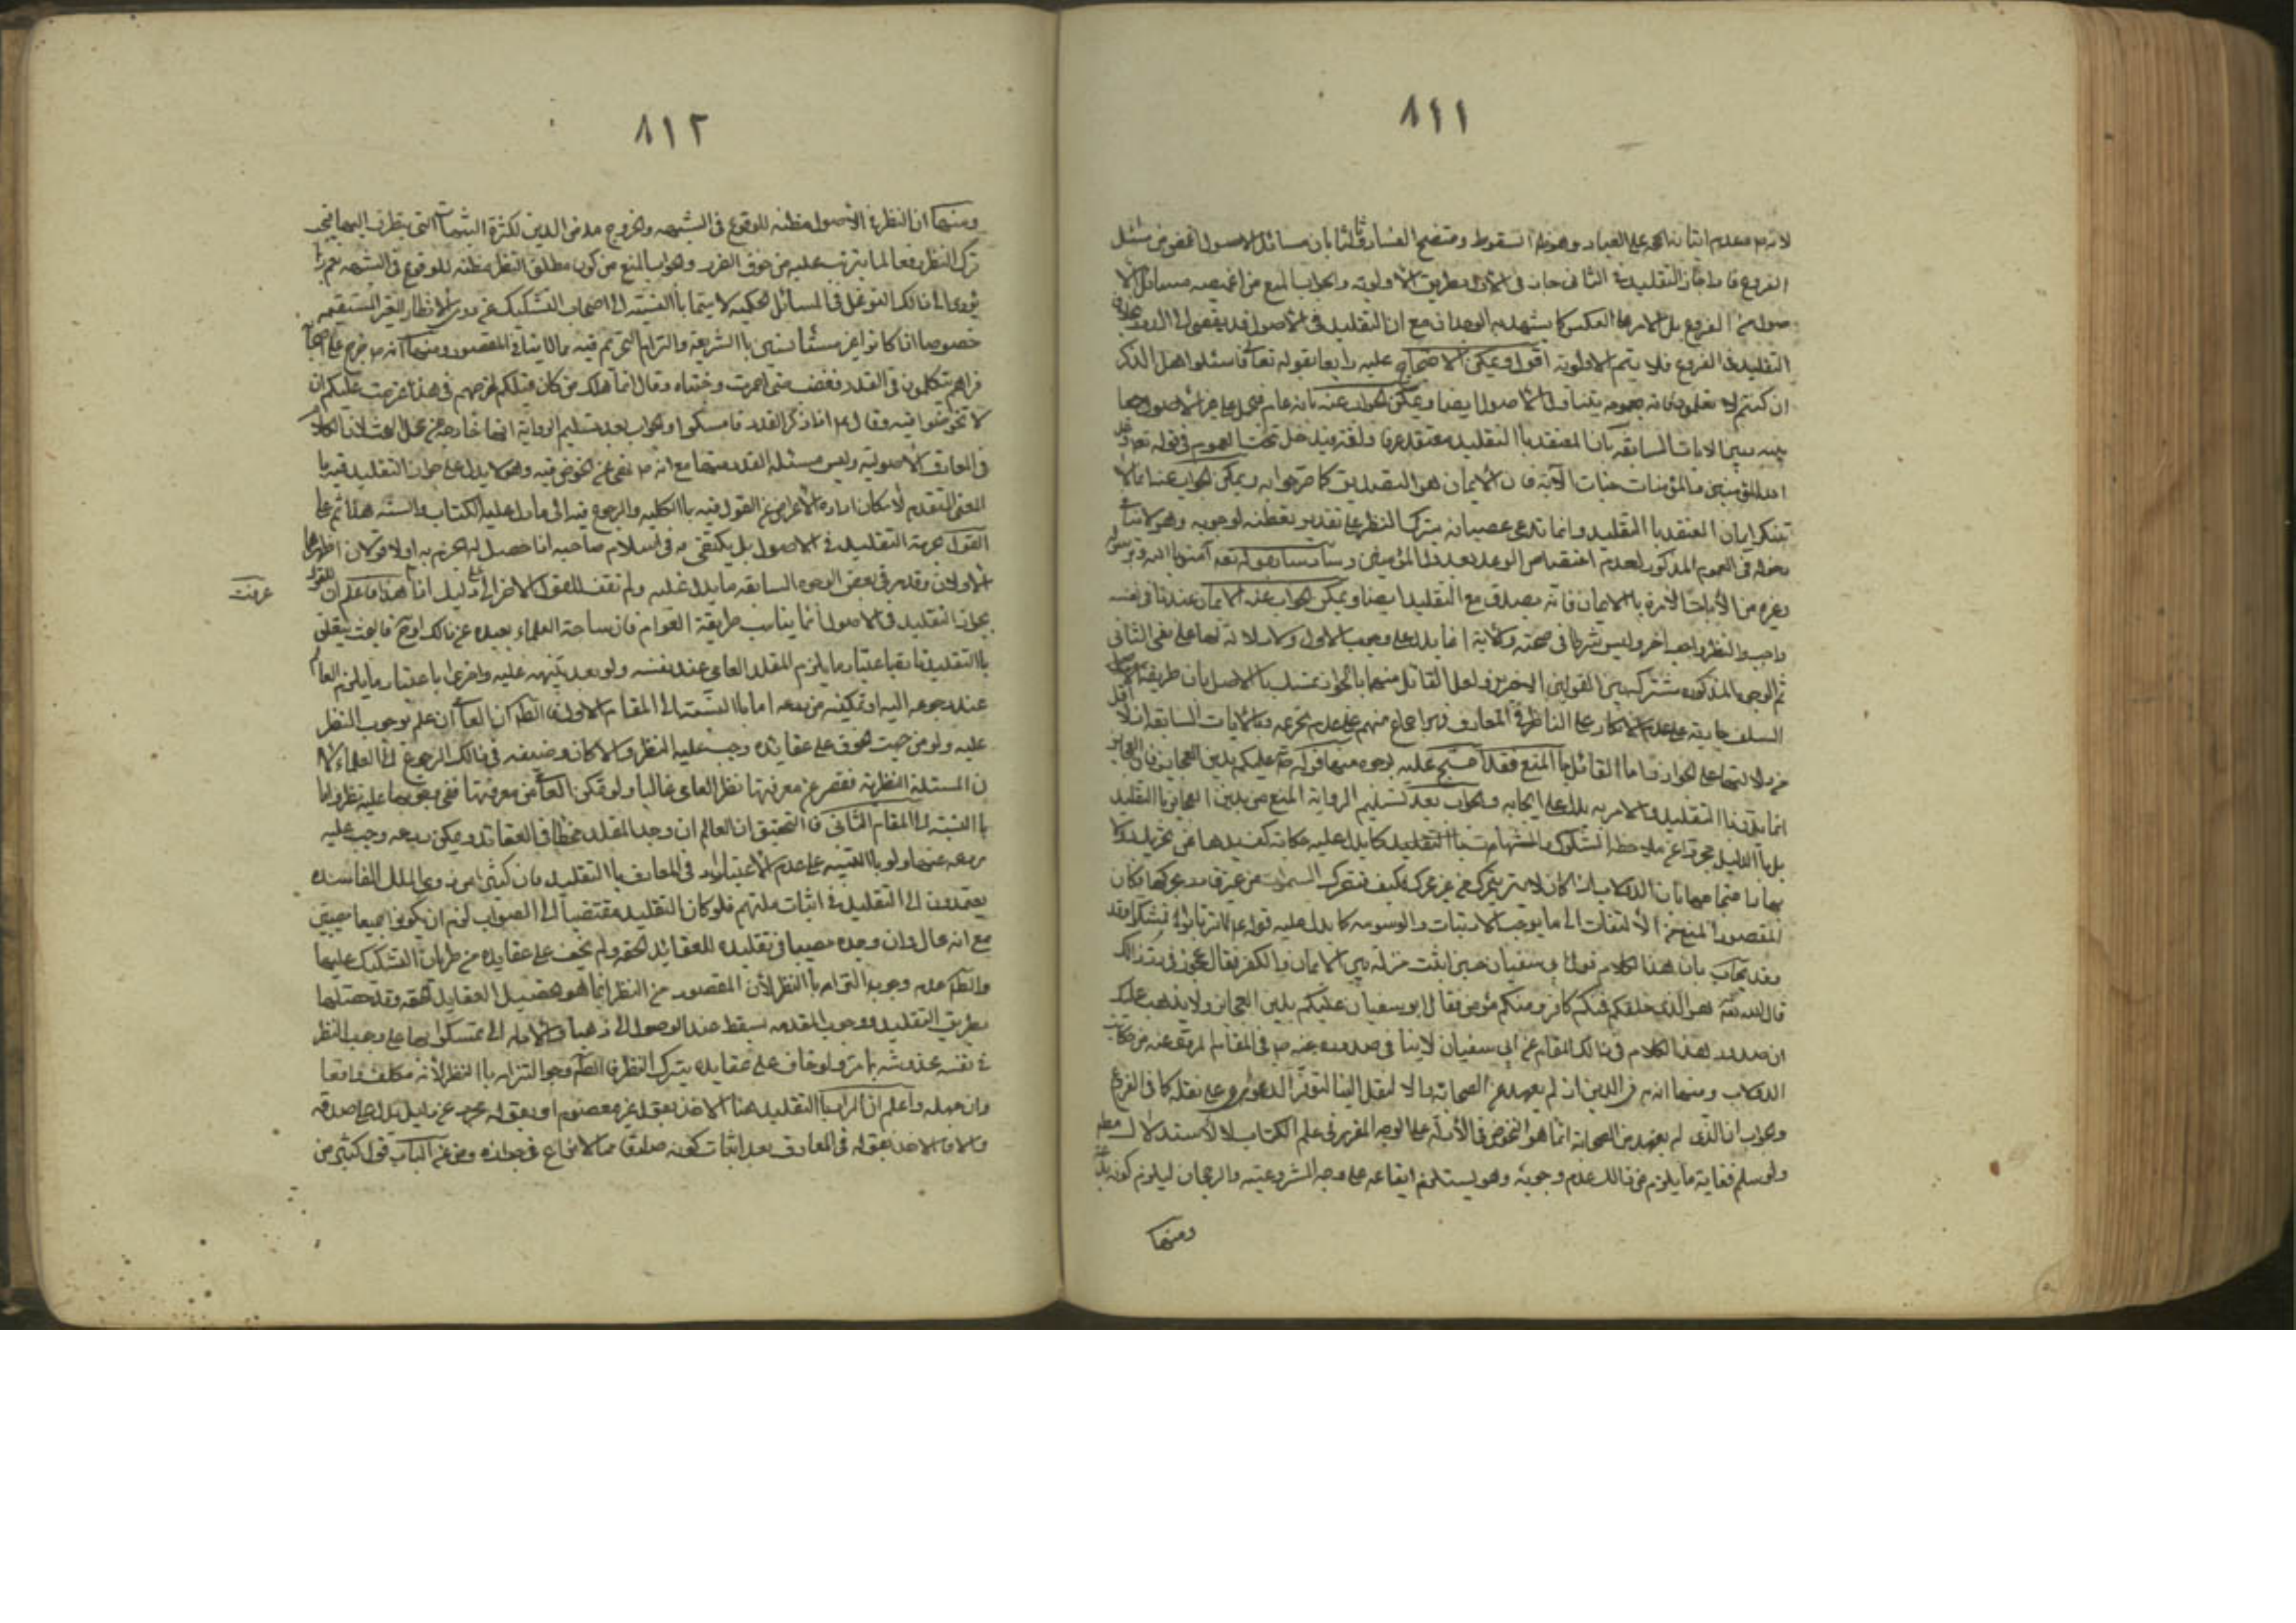 ٨١١
لانه مع عدم اتيانه الحجة على العباد وهو السقوط ومتضح الفساد وثالثا بان مسائل الاصول اغمض من مسائل
الفروع فاذا جاز التقليد في الثانى جاز في الاول بطريق الاولوية والجواب المنع من اغمضية مسائل الا
صول من الفروع بل الامر بالعكس كما يشهد به الوجدان مع ان التقليد في الاصول قد يفضى الى الدور بخلاف
التقليد في الفروع فلا يتم الاولوية اقول ويمكن الاحتجاج عليه رابعا بقوله تعالى فاسئلوا اهل الذكر
ان كنتم لا تعلمون فانه بعمومه يتناول الاصول ايضا ويمكن الجواب عنه بانه عام فيحمل على غير الاصول جمعا
بينه وبين الايات السابقه بان المعتقد بالتقليد معتقد عرفا ولغة فيدخل تحت العموم في قوله تعالى وعد
الله المؤمنين والمؤمنات جنات الآية فان الايمان هو التصديق كما صرحوا به ويمكن الجواب عنه
ننكر ايمان المعتقد بالتقليد وانما ندعى عصيانه بترك النظر على تقدير تفطنه لوجوبه وهو لا ينافى
دخوله في العموم المذكور لعدم اختصاص الوعد بعدول المؤمنين وسادسا بقوله تعالى آمنوا بالله ورسوله
وغيره من الآيات الآمرة بالايمان فانه يصدق مع التقليد ايضا ويمكن الجواب عنه الايمان عندنا في نفسه
واجب والنظر واجب آخر وليس شرطا في صحته والآية انما يدل على وجوب الاول ولا دلالة لها على نفى الثانى
ثم الوجوه المذكورة مشتركة بين القولين الاخيرين ولعل القائل منهما بالجواز تمسك بالاصل بان طريقة
السلف جارية على عدم الانكار على الناظر في المعارف وبواجماع منهم على عدم تحريمه وبالآيات السابقة اذ لا اقل
من دلالتها على الجواز واما القائل بالمنع فقد احتج عليه بوجوه منها قوله ص عليكم بدين العجايز فان العجايز
انما يتدينا التقليد والامر به يدل على ايجابه والجواب بعد تسليم الرواية المنع من تدين العجايز بالتقليد
بل بالدليل مجردا عن ملاحظة الشكوك والشبهات
المقصود المنع من الالتفات الى ما يوجب الارتياب والوسوسه كما يدل عليه
وقد يجاب بان هذا الكلام قول ابى سفيان حين اثبت منزلة بين الايمان والكفر فقال عجوز في رد ذلك
قال الله تعالى هو الذى خلقكم فمنكم كافر ومنكم مؤمن فقال ابو سفيان عليكم بدين العجايز ولا يذهب عليك
ان صدور هذا الكلام في ذلك المقام عن ابى سفيان لا ينافى صدوره عنه ص في المقام المروى عنه من حكاية
الدولاب ومنها انه من الدين اذ لم يعهد عن الصحابة والا لنقل الينا لتوفر الدواعى على نقله كما في الفروع
والجواب ان الذى لم يعهد من الصحابة انما هو الخوض في الأدلة على الوجه المقرر في علم الكتاب لا الاستدلال مطلقا
ولو سلم فغاية ما يلزم من ذلك عدم وجوبه وهو يستلزم ايقاعه على وجه المشروعية والرجحان ليلزم كونه بدعة
ومنها
٨١٢
ومنها ان النظر في الاصول مظنه للوقوع في الشبهه والخروج من الدين لكثرة الشبهات التى يتطرق اليها فيجب
ترك النظر دفعا لما يترتب عليه من خوف الضرر والجواب المنع من كون مطلق النظر مظنه للوقوع في الشبهه نعم ربما
يؤدى الى ذلك التوغل في المسائل الحكمية لا سيما بالنسبة الى اصحاب التشكيك من ذوى الانظار الغير المستقيمه
خصوصا اذا كانوا غير مستأنسين بالشريعة والتزام البحث ثم فيه بما لا ينافى المقصود ومنها انه ص خرج على اصحابه
فراهم يتكلمون في القدر فغضب حتى احمرت وجنتاه وقال انما هلك من كان قبلكم لخوضهم في هذا عزمت عليكم ان
لا تخوضوا فيه وقال ع اذا ذكر القدر فامسكوا والجواب بعد تسليم الرواية انها خارجة عن محل البحث لان الكلام
في المعارف الاصولية وليس مسئله القدر منها مع انه ص نهى عن الخوض فيه وهو لا يدل على جواز التقليد فيه با
لمعنى المتقدم لامكان ارادة الاعراض عن القول فيه بالكلية والرجوع فيه الى ما دل عليه الكتاب والسنة هذا ثم على
القول بحرمة التقليد في الاصول بل يكتفى به في اسلام صاحبه اذا حصل له الجزم به اولا قولان اظهرهما
الاول وقد مر في بعض الوجوه السابقه ما يدل عليه ولم نقف للقول الاخر على دليل اذا عرفت هذا فاعلم ان القول
بجواز التقليد في الاصول انما يناسب طريقة العوام فان ساحة العلماء بعيده عن ذلك فالبحث يتعلق
بالتقليد تارة باعتبار ما يلزم المقلد العامى عند نفسه ولو بعد تنبهه عليه واخرى باعتبار ما يلزم العالم
عند رجوعه اليه او تمكينه من ردعه اما بالنسبة الى المقام الاول فالظاهر ان العامى ان علم بوجوب النظر
عليه ولو من حيث الخوف على عقائده وجب عليه النظر والا كان وضيفه في ذلك الرجوع الى العلماء لا
ن المسئلة النظرية يقصر عن معرفتها نظر العامى غالبا ولو تمكن العامى من معرفتها ففى وجوبها عليه نظر واما
بالنسبة الى المقام الثانى فالتحقيق ان العالم ان وجد المقلد مخطئا في العقائد ويمكن ردعه وجب عليه
ردعه عنها ولو بالتنبيه على عدم الاعتبار في المعارف بالتقليد فان كثيرا من ذوى الملل الفاسده
يعتمدون الى التقليد في اثبات ملتهم فلو كان التقليد مقتضيا الى الصواب لزم ان يكونوا جميعا مصيبين
مع انه محال وان وجده مصيبا في تقليده للعقائد الحقه ولم يخف على عقايده من طريان التشكيك عليها
فالظاهر عدم وجوب التزامه بالنظر لأن المقصود من النظر انما هو تحصيل العقايد الحقه وقد حصلها
بطريق التقليد ووجوب المقدمه يسقط عند الوصول الى ذيها والادلة التى تمسكوا بها على وجوب النظر
في نفسه مخدوشه بما مر ولو خاف على عقايده بترك النظر فالظاهر وجوب التزامه بالنظر لأنه مكلف
وان جهله واعلم ان المراد بالتقليد هنا الاخذ بقول غير معصوم او بقوله مجردا عن دليل يدل على صدقه
والا فالاخذ بقوله في المعارف بعد اثبات كونه صادقا مما لا نزاع في جوازه ومن هذا الباب قول كثير من
عرفت